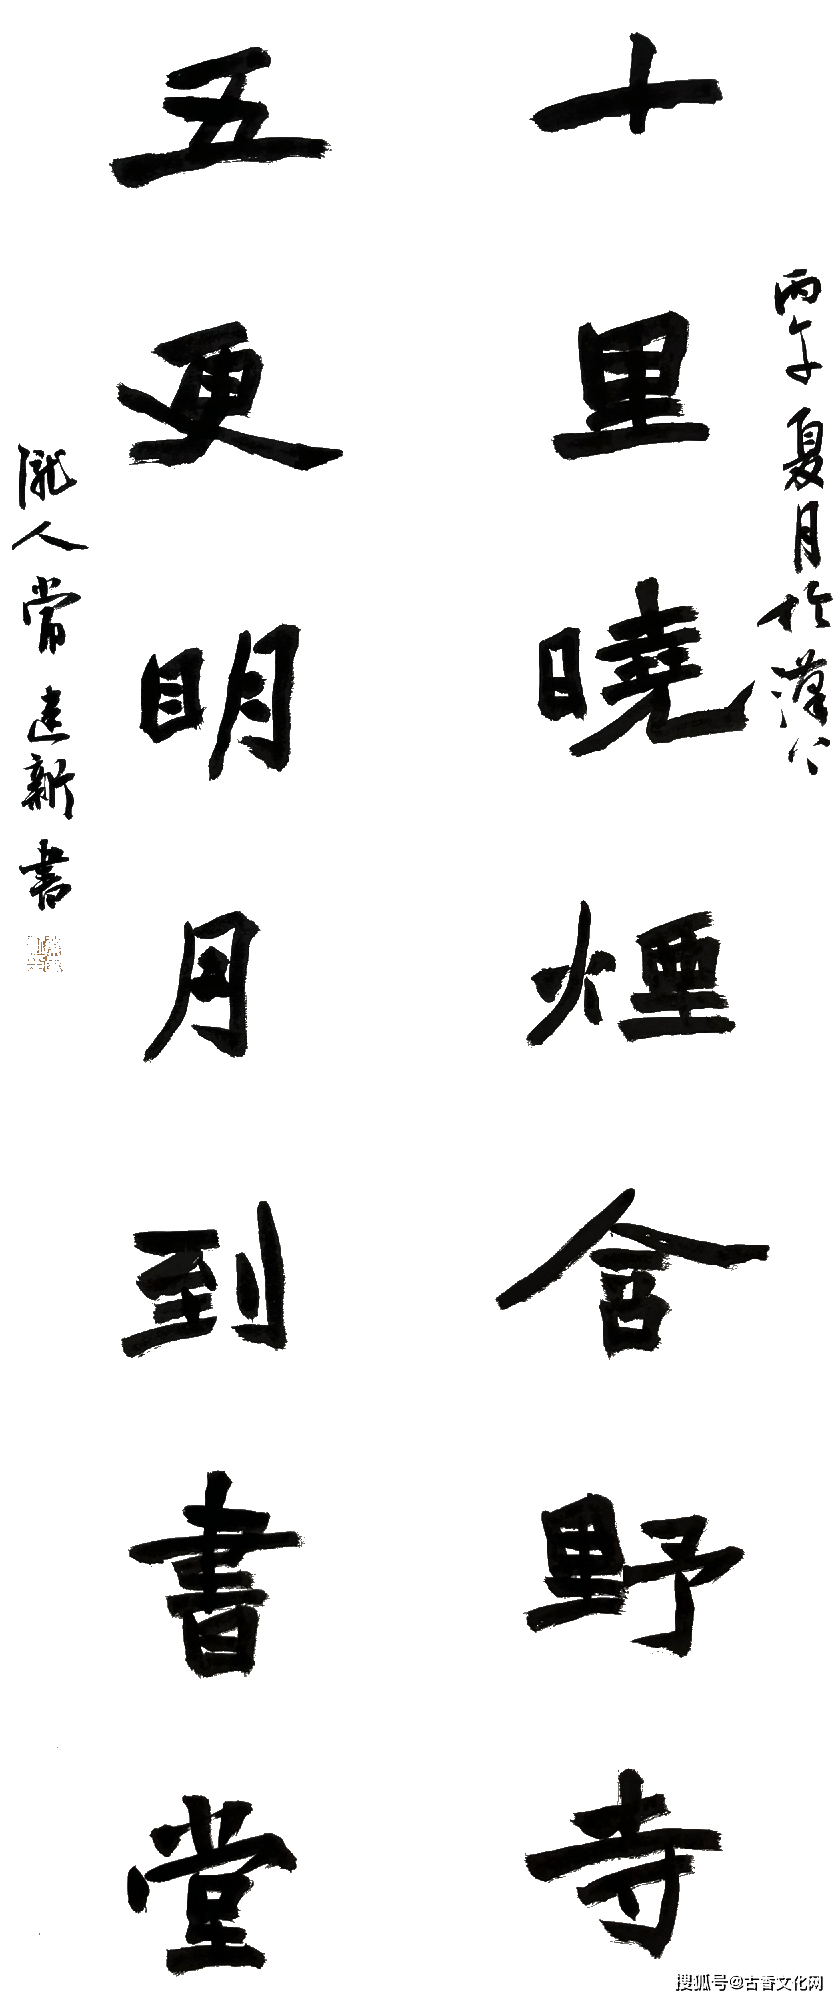 丙午夏月於漢上
十里曉煙含野寺
五更明月到書堂
隴人常建新書
搜狐号@古香文化网